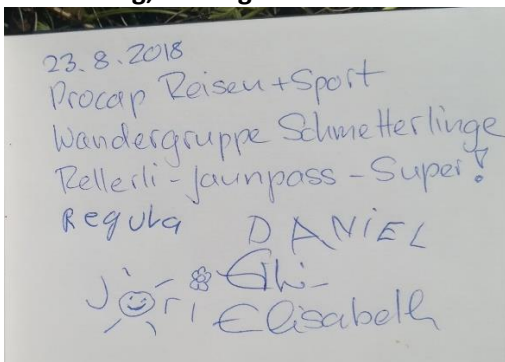 23.8.2018
Procap Reisen + Sport
Wandergruppe Schmetterlinge
Rellerli - Jaunpass - Super!
Regula DANIEL
Jöri
Elisabeth